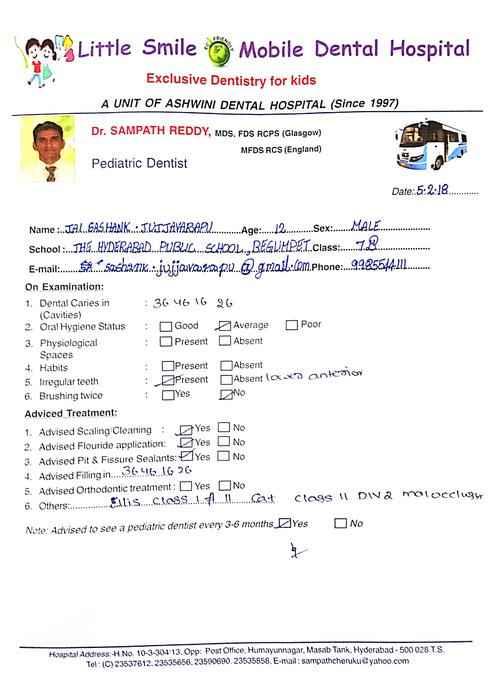 Little Smile ECO FRIENDLY Mobile Dental Hospital
Exclusive Dentistry for kids
A UNIT OF ASHWINI DENTAL HOSPITAL (Since 1997)
Dr. SAMPATH REDDY, MDS, FDS RCPS (Glasgow)
MFDS RCS (England)
Pediatric Dentist
Date: 5.2.18
Name: JAI SASHANK. JUJJAVARAPU Age: 12 Sex: MALE
School: THE HYDERABAD PUBLIC SCHOOL, BEGUMPET Class: 7.B
E-mail: sashank.jujjavarapu@gmail.com Phone:
On Examination:
1. Dental Caries in : 36 46 16 26
(Cavities)
2. Oral Hygiene Status : Good Average Poor
3. Physiological : Present Absent
Spaces
4. Habits : Present Absent
5. Irregular teeth : Present Absent anterior
6. Brushing twice : Yes No
Adviced Treatment:
1. Advised Scaling/Cleaning : Yes No
2. Advised Flouride application: Yes No
3. Advised Pit & Fissure Sealants: Yes No
4. Advised Filling in 36 46 16 26
5. Advised Orthodontic treatment : Yes No
6. Others: Ellis class I & II class II DIV 2 malocclusn
Note: Advised to see a pediatric dentist every 3-6 months Yes No
Hospital Address:-H.No. 10-3-304/13, Opp: Post Office, Humayunnagar, Masab Tank, Hyderabad - 500 028.T.S.
Tel : (C) 23537612, 23535656, 23590690, 23535858, E-mail : sampathcheruku@yahoo.com